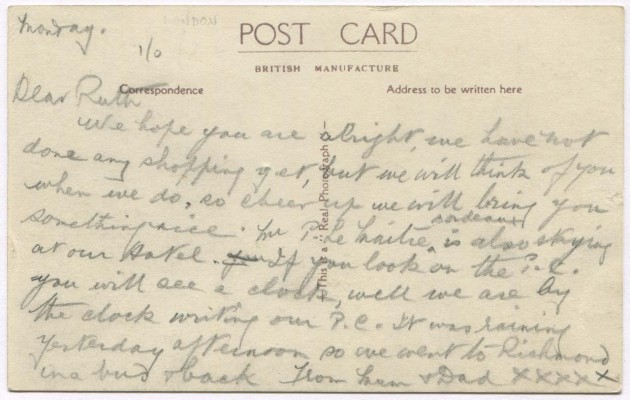 Monday.
LONDON
1/0
POST CARD
BRITISH MANUFACTURE
Correspondence
Address to be written here
Dear Ruth
We hope you are alright, we have not
done any shopping yet, but we will think of you
when we do, so cheer up we will bring you
something nice. Mr P. Le Maitre, Bordeaux, is also staying
at our Hotel. If you look on the P.C.
you will see a clock, well we are by
the clock writing our P.C. It was raining
yesterday afternoon so we went to Richmond
in a bus & back From Mum & Dad XXXXX
This is a Real Photograph